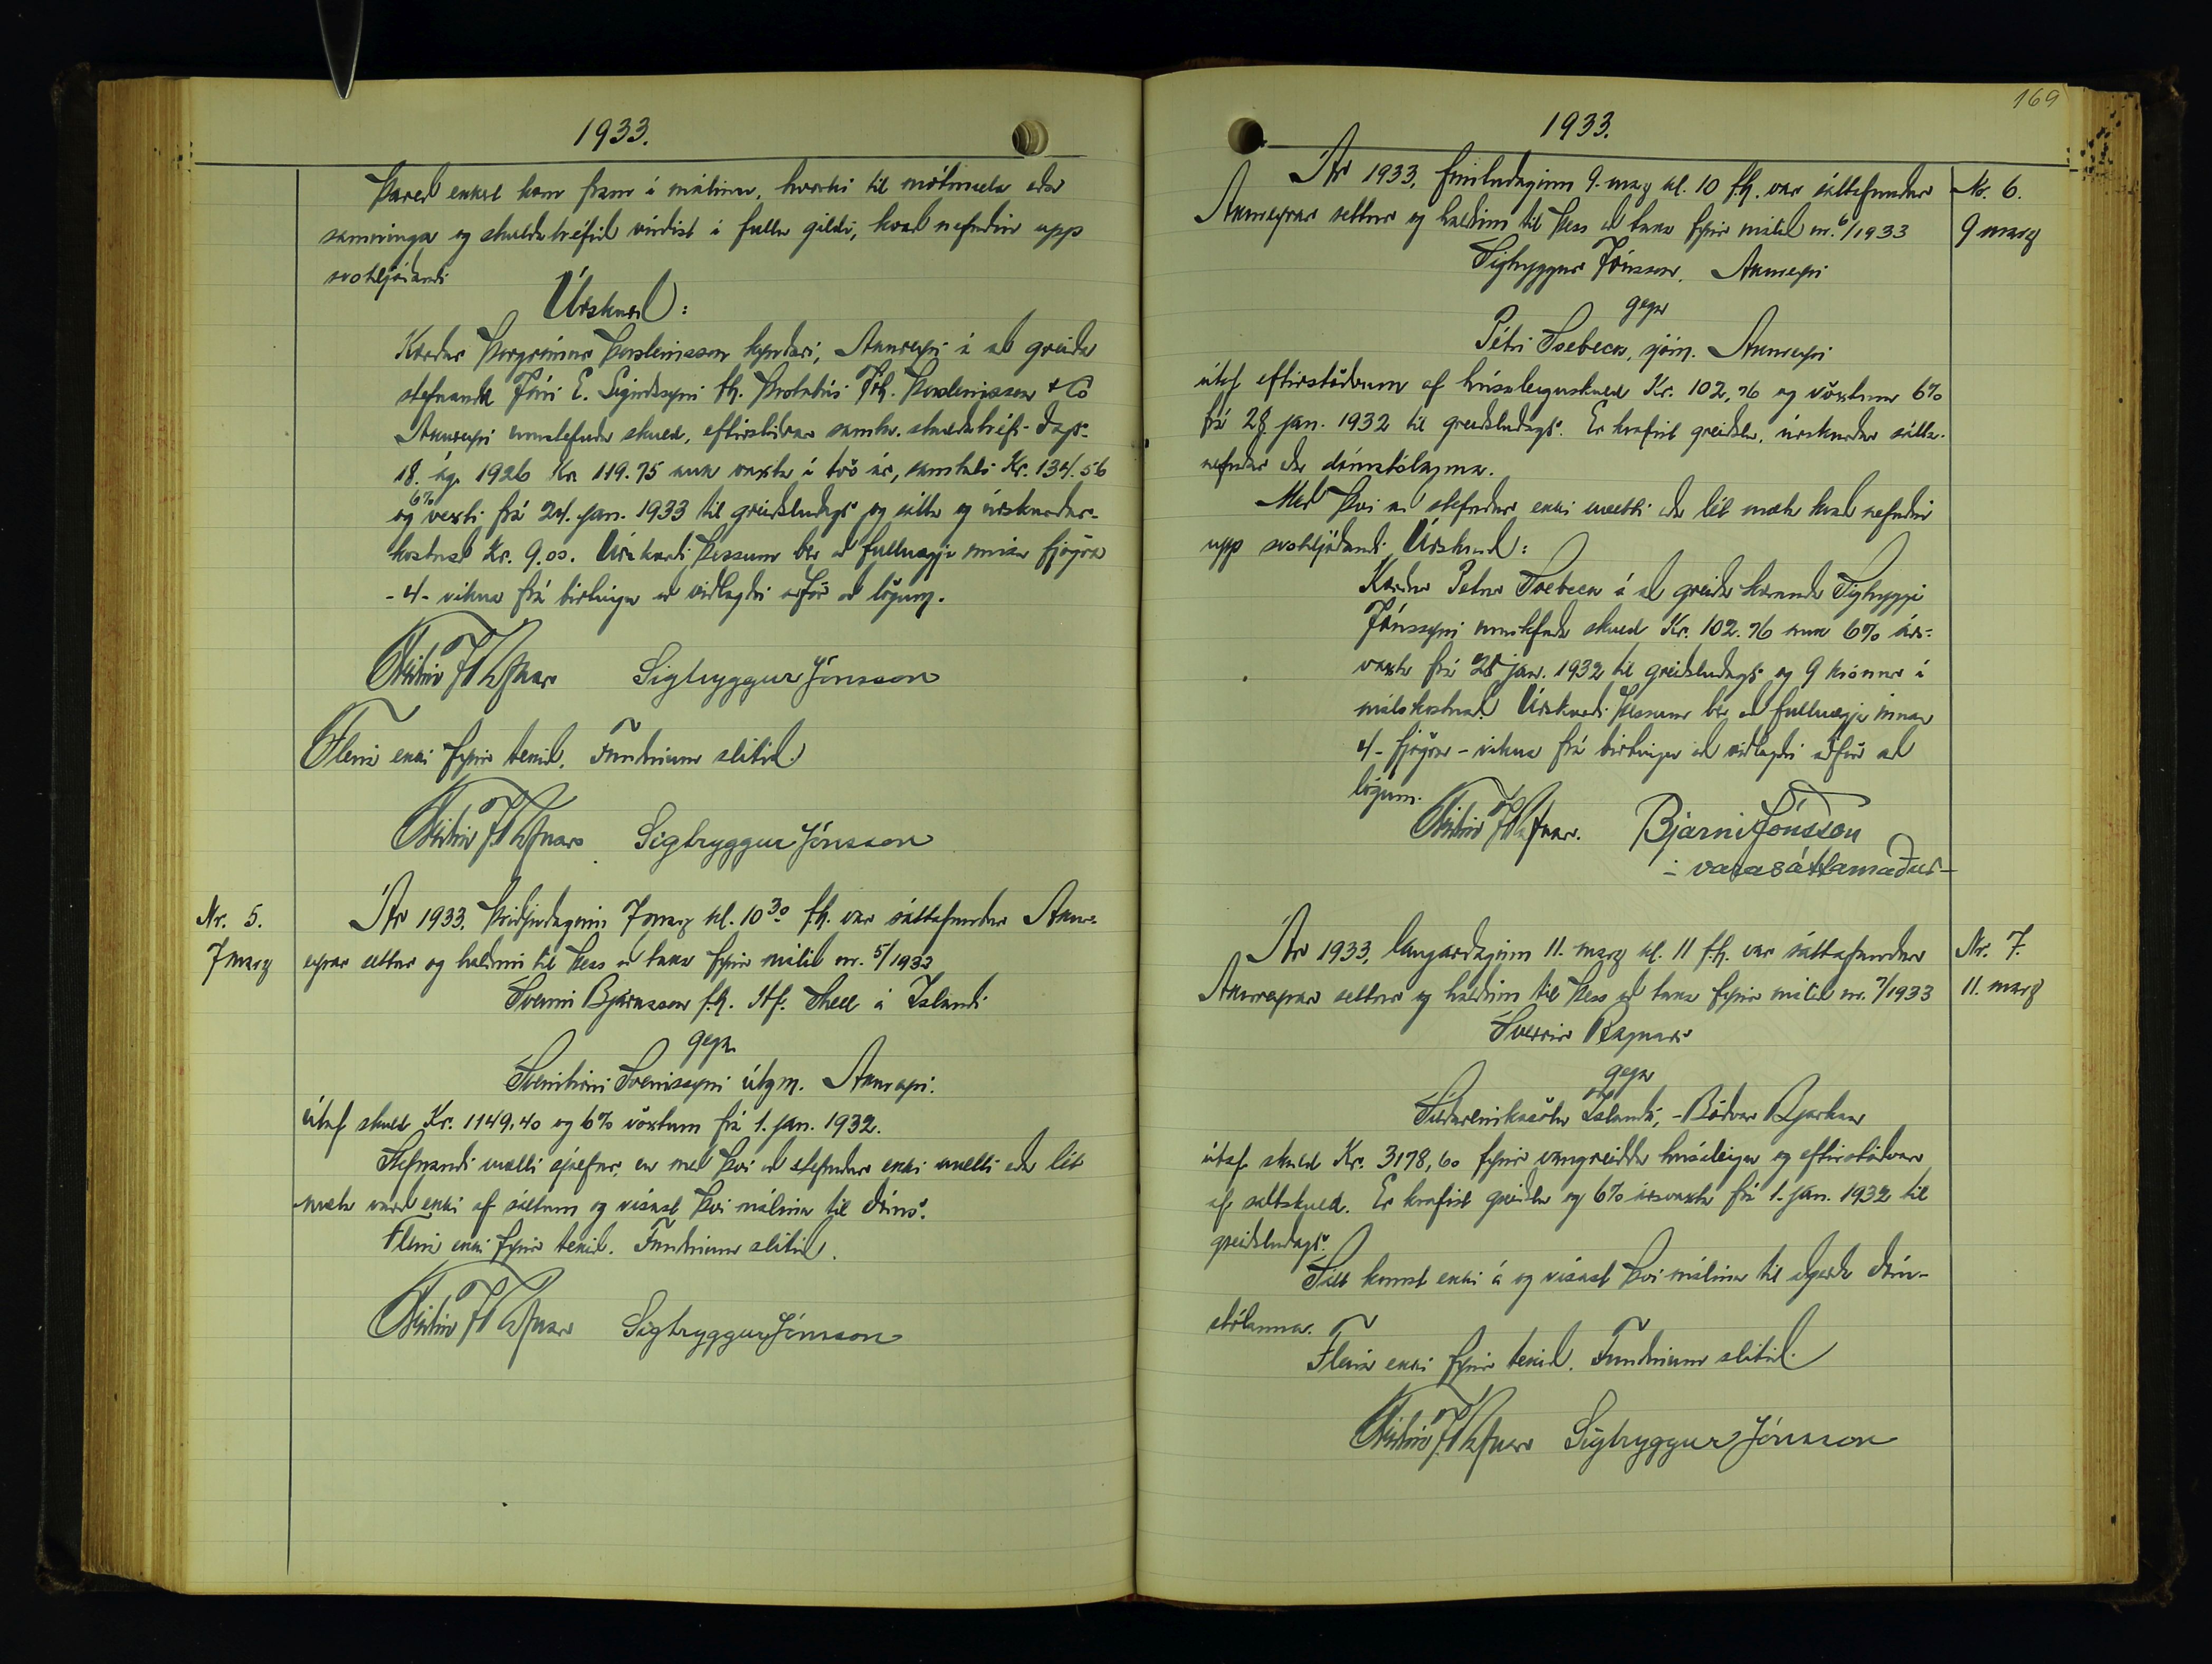 1933.
Þareð ekkert kom fram í málinu, hvorki til mótmæla eða
samninga og skuldabréfið virðist í fullu gildi, kvað nefndin upp
svohljóðandi
Úrskurð:
Kærður Þorgrímur Þorsteinsson kyndari, Akureyri á að greiða
stefnanda Jóni E. Sigurðssyni fh. Þrotabús Joh. Þorsteinsson & Co
Akureyri umstefnda skuld, eftirstöðvar samkv. skuldabréfi dags.
18. ág. 1926 Kr. 119.75 auk vaxta í tvö ár, samtals Kr. 134.56
og 6% vexti frá 24. jan. 1933 til greiðsludags og sátta og úrskurðar-
kostnað Kr. 9.00. Úrskurði þessum ber að fullnægja innan fjögra
- 4 - vikna frá birtingu að viðlagðri aðför að lögum.
Sigtryggur Jónsson
Fleira ekki fyrir tekið. Fundinum slitið.
Sigtryggur Jónsson
Nr. 5.
7 marz
Ár 1933. Þriðjudaginn 7 marz kl. 10 30 fh. var sáttafundur Akur-
eyrar settur og haldinn til þess að taka fyrir málið nr. 5/1933
Sveinn Bjarnason f.h. H.f. Shell á Íslandi
gegn
Steinþóri Sveinssyni útgm. Akureyri.
útaf skuld Kr. 1149.40 og 6% vöxtum frá 1. jan. 1932.
Stefnandi mætti sjálfur, en með því að stefndur ekki mætti eða lét
mæta varð ekki af sáttum og vísast því málinu til dóms.
Fleira ekki fyrir tekið. Fundinum slitið.
Sigtryggur Jónsson
169
1933.
Ár 1933, fimtudaginn 9. marz kl. 10 f.h. var sáttafundur
Akureyrar settur og haldinn til þess að taka fyrir málið nr. 6/1933
Nr. 6.
9 marz
Sigtryggur Jónsson, Akureyri
gegn
Pétri Soebeck, sjóm. Akureyri
útaf eftirstöðvum af húsaleiguskuld Kr. 102,76 og vöxtum 6%
frá 28. jan. 1932 til greiðsludags. Er krafist greiðslu, úrskurðar sátta-
nefndar eða dómstólagöngu.
Með því að stefndur ekki mætti eða lét mæta kvað nefndin
upp svohljóðandi Úrskurð:
Kærður Petur Soebeck á að greiða kæranda Sigtryggi
Jónssyni umstefnda skuld Kr. 102.76 auk 6% árs-
vaxta frá 28 jan. 1932 til greiðsludags og 9 krónur í
málskostnað. Úrskurði þessum ber að fullnægja innan
4 - fjögra - vikna frá birtingu að viðlagðri aðför að
lögum.
Bjarni Jónsson
- varasáttamaður -
Ár 1933, laugardaginn 11. marz kl. 11 f.h. var sáttafundur
Akureyrar settur og haldinn til þess að taka fyrir málið nr. 7/1933
Nr. 7.
11. marz
Sverrir Ragnars
gegn
Síldareinkasölu Íslands, - Böðvar Bjarkan
útaf skuld Kr. 3178,60 fyrir vangreidda húsaleigu og eftirstöðvar
af saltskuld. Er krafist greiðslu og 6% ársvaxta frá 1. jan. 1932 til
greiðsludags.
Sátt komst ekki á og vísast því málinu til aðgerða dóm-
stólanna.
Fleira ekki fyrir tekið. Fundinum slitið.
Sigtryggur Jónsson